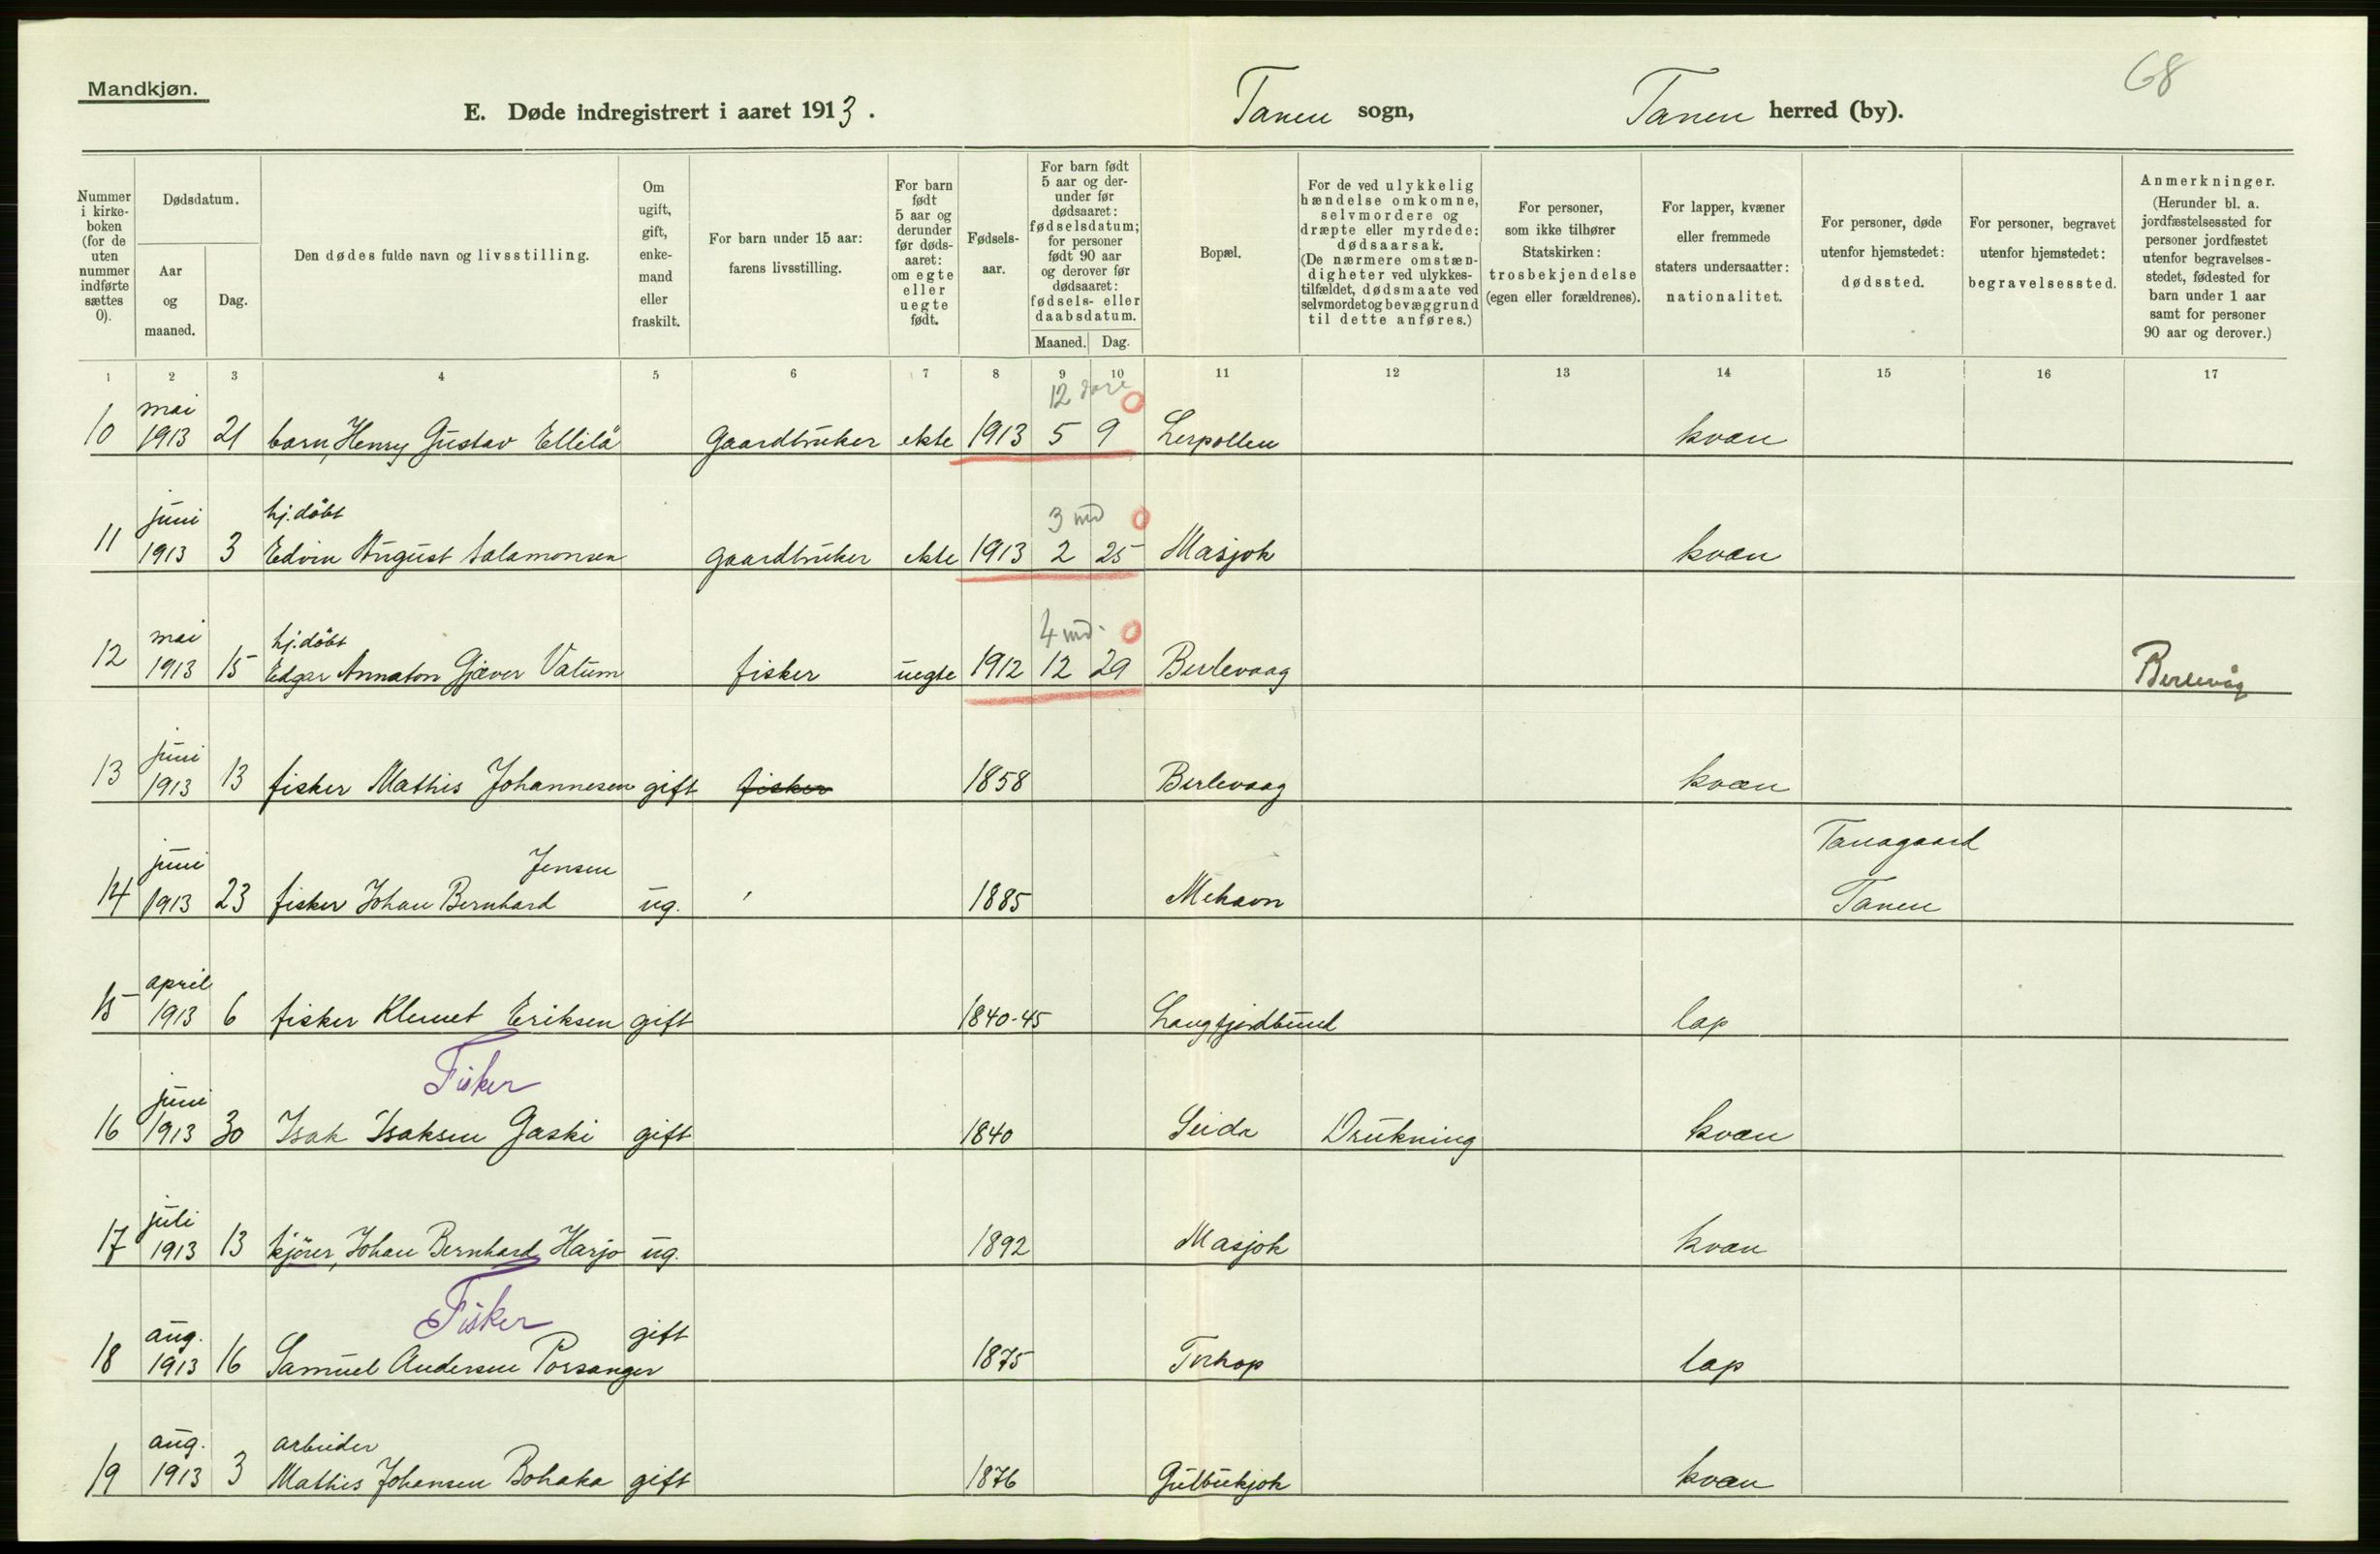 68
Mandkjøn.
E. Døde indregistrert i aaret 1913.
Tanen sogn, Tanen herred (by).
Nummer i kirke-boken (for de uten nummer indførte sættes 0).
Dødsdatum.
Aar og maaned.
Dag.
Den dødes fulde navn og livsstilling.
Om ugift, gift, enke-mand eller fraskilt.
For barn under 15 aar: farens livsstilling.
For barn født 5 aar og derunder før døds-aaret: om egte eller uegte født.
Fødsels-aar.
For barn født 5 aar og der-under før dødsaaret: fødselsdatum; for personer født 90 aar og derover før dødsaaret: fødsels- eller daabsdatum.
Maaned. Dag.
Bopæl.
For de ved ulykkelig hændelse omkomne, selvmordere og dræpte eller myrdede: dødsaarsak. (De nærmere omstæn-digheter ved ulykkes-tilfældet, dødsmaate ved selvmordet og bevæggrund til dette anføres.)
For personer, som ikke tilhører Statskirken: trosbekjendelse (egen eller forældrenes).
For lapper, kvæner eller fremmede staters undersaatter: nationalitet.
For personer, døde utenfor hjemstedet: dødssted.
For personer, begravet utenfor hjemstedet: begravelsessted.
Anmerkninger. (Herunder bl. a. jordfæstelsessted for personer jordfæstet utenfor begravelses-stedet, fødested for barn under 1 aar samt for personer 90 aar og derover.)
1 2 3 4 5 6 7 8 9 10 11 12 13 14 15 16 17
mai 12 O
10 1913 21 barn, Henry Gustav Ellilä Gaardbruker ekte 1913 5 9 Leirpollen kvæn
juni hj.döbt 3 md O
11 1913 3 Edvin August Salamonsen Gaardbruker ekte 1913 2 25 Masjok kvæn
mai hj.döbt 4 md. O
12 1913 15 Edgar Annaton Gjæver Vatum fisker uegte 1912 12 29 Berlevaag Berlevåg
juni
13 1913 13 fisker Mathis Johannesen gift fisker 1858 Berlevaag kvæn
juni Jensen Tanagaard
14 1913 23 fisker Johan Bernhard ug. 1885 Mehavn Tanen
april
15 1913 6 fisker Klemet Eriksen gift 1840-45 Langfjordbund lap
juni Fisker
16 1913 30 Isak Isaksen Gaski gift 1840 Seida Drukning kvæn
juli
17 1913 13 kjörer, Johan Bernhard Harjo ug. 1892 Masjok kvæn
aug. Fisker gift
18 1913 16 Samuel Andersen Porsanger 1875 Torhop lap
aug. arbeider
19 1913 3 Mathis Johansen Bohaka gift 1876 Gulbukjok kvæn